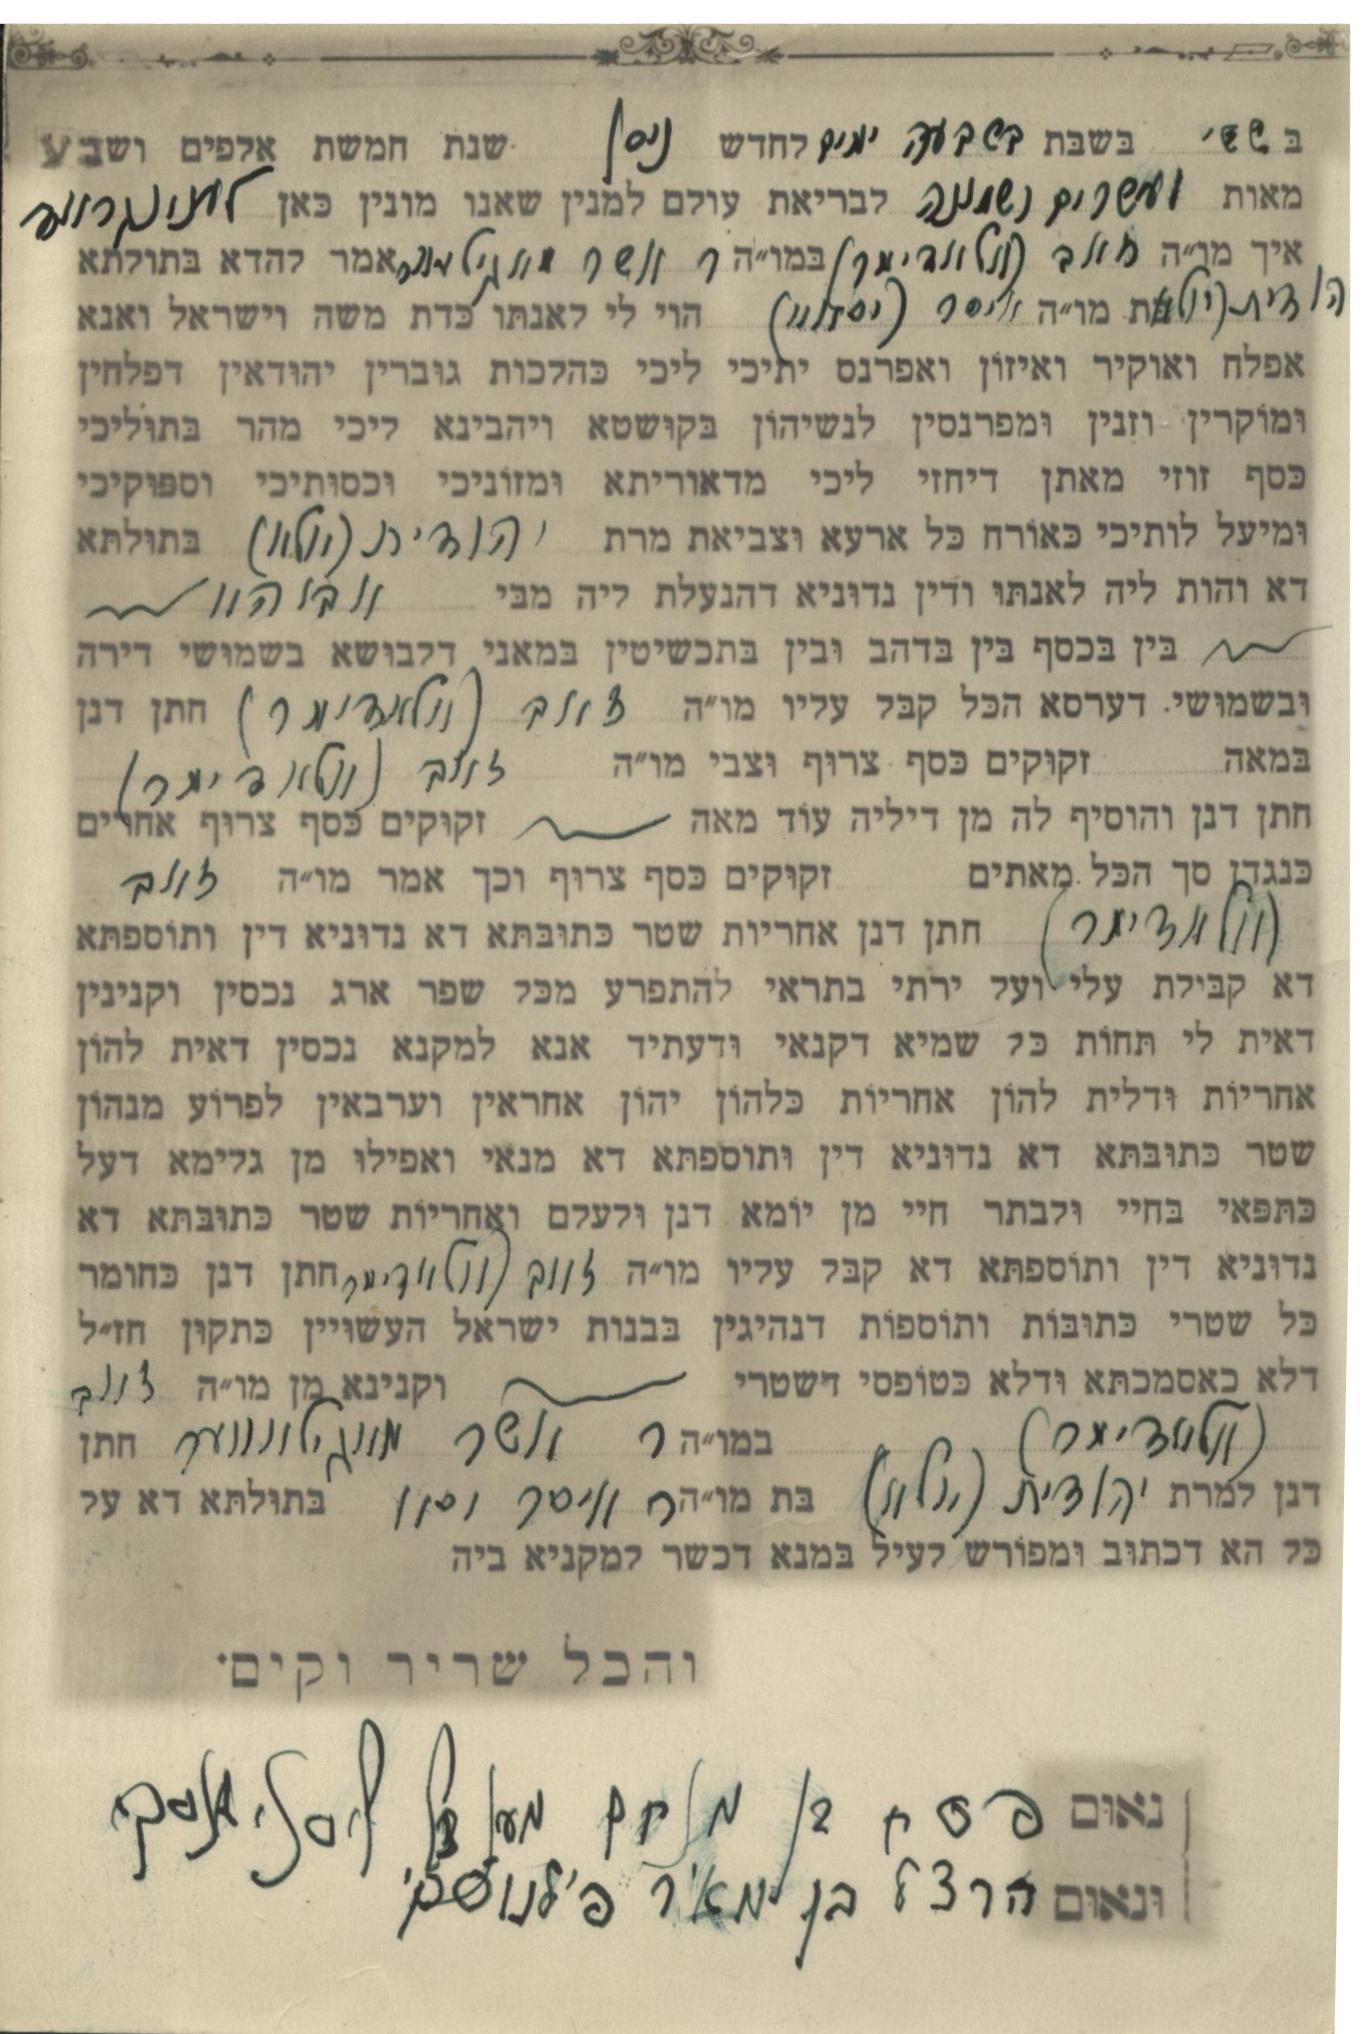 בששי בשבת בשבעה ימים לחדש ניסן שנת חמשת אלפים ושבע
מאות ועשרים ושמונה לבריאת עולם למנין שאנו מונין כאן לענינגראד
איך מו״ה זאב (וולאדימר) במו״ה ר אשר אמר להדא בתולתא
יהודית (יולא) בת מו״ה איסר הוי לי לאנתו כדת משה וישראל ואנא
אפלח ואוקיר ואיזון ואפרנס יתיכי ליכי כהלכות גוברין יהודאין דפלחין
ומוקרין וזנין ומפרנסין לנשיהון בקושטא ויהבינא ליכי מהר בתוליכי
כסף זוזי מאתן דיחזי ליכי מדאוריתא ומזוניכי וכסותיכי וספוקיכי
ומיעל לותיכי כאורח כל ארעא וצביאת מרת יהודית (יולא) בתולתא
דא והות ליה לאנתו ודין נדוניא דהנעלת ליה מבי אבוהא
בין בכסף בין בדהב ובין בתכשיטין במאני דלבושא בשמושי דירה
ובשמושי דערסא הכל קבל עליו מו״ה זאב (וולאדימר) חתן דנן
במאה זקוקים כסף צרוף וצבי מו״ה זאב (וולאדימר)
חתן דנן והוסיף לה מן דיליה עוד מאה זקוקים כסף צרוף אחרים
כנגדן סך הכל מאתים זקוקים כסף צרוף וכך אמר מו״ה זאב
(וולאדימר) חתן דנן אחריות שטר כתובתא דא נדוניא דין ותוספתא
דא קבילת עלי ועל ירתי בתראי להתפרע מכל שפר ארג נכסין וקנינין
דאית לי תחות כל שמיא דקנאי ודעתיד אנא למקנא נכסין דאית להון
אחריות ודלית להון אחריות כלהון יהון אחראין וערבאין לפרוע מנהון
שטר כתובתא דא נדוניא דין ותוספתא דא מנאי ואפילו מן גלימא דעל
כתפאי בחיי ולבתר חיי מן יומא דנן ולעלם ואחריות שטר כתובתא דא
נדוניא דין ותוספתא דא קבל עליו מו״ה זאב (וולאדימר חתן דנן כחומר
כל שטרי כתובות ותוספות דנהיגין בבנות ישראל העשויין כתקון חז״ל
דלא כאסמכתא ודלא כטופסי דשטרי וקנינא מן מו״ה זאב
(וולאדימר) במו״ה ר אשר חתן
דנן למרת יהודית (יולא) בת מו״ה ר איסר בתולתא דא על
כל הא דכתוב ומפורש לעיל במנא דכשר למקניא ביה
והכל שריר וקים.
נאום פסח בן מנחם
ונאום הרצל בן מאיר